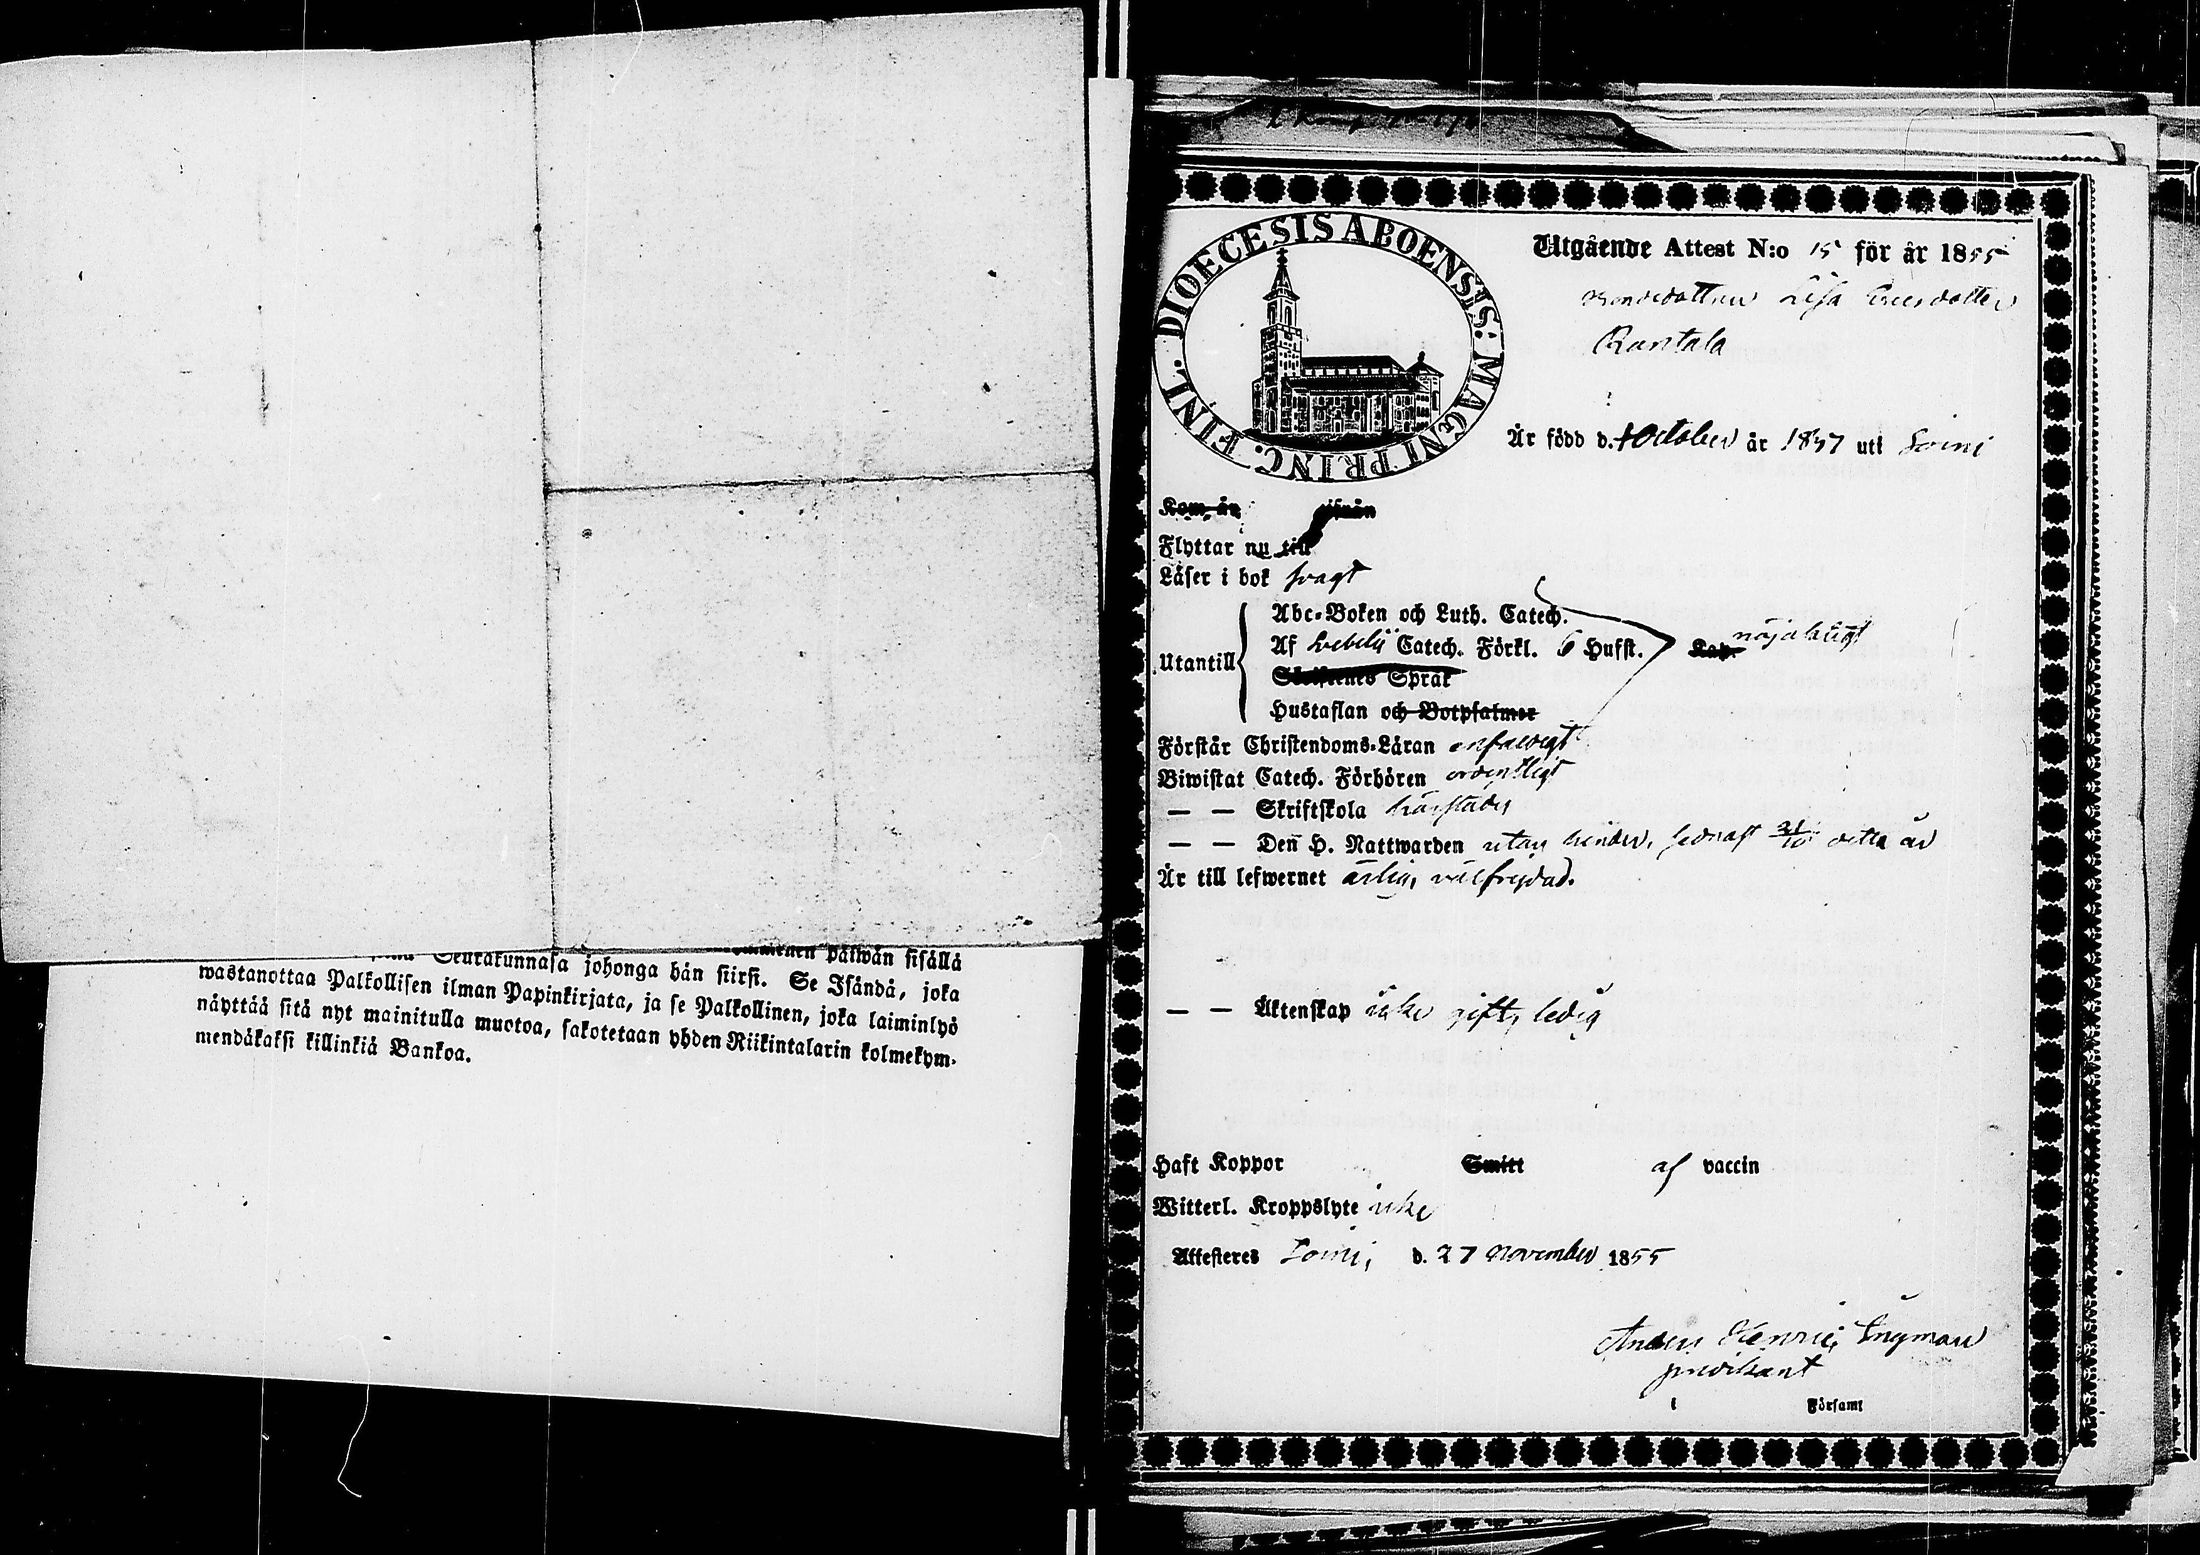 Seurakunnasa johonga hän siirsi. päiwän sisällä
wastanottaa Palkollisen ilman Papinkirjata, ja se Se Isändä, joka
näyttää sitä nyt mainitulla muotoa, sakotetaan Palkollinen, joka laiminlyö
mendäkaksi killinkiä Bankoa. yhden Riikintalarin kolmekym-
DIOECESIS ABOENSIS: MAGNI PRINC. FINL.
Utgående Attest N:o 15 för år 1855
Bondedottren Lisa
Rantala
Är född d. October år 1837 uti Loimi
Kom år ifrån
Flyttar nu till
Läser i bok svagt
Utantill
Abc-Boken och Luth. Catech.
Af Svebelii Catech. Förkl. 6 Hufst. Kap. nöjaktigt
Skriftenes Språk
Hustaflan och Botpsalmer
Förstår Christendoms-Läran enfaldigt
Biwistat Catech. Förhören ordentligt
— — Skriftskola härstädes
— — Den H. Nattwarden utan hinder, sednast 21/10 detta år
Är till lefwernet ärlig, välfrejdad.
— — Äktenskap icke gift, ledig
Haft Koppor Smitt af vaccin
Witterl. Kroppslyte icke
Attesteres Loimi, d. 27 november 1855
Anders Henric Ingman
predikant
i Församl